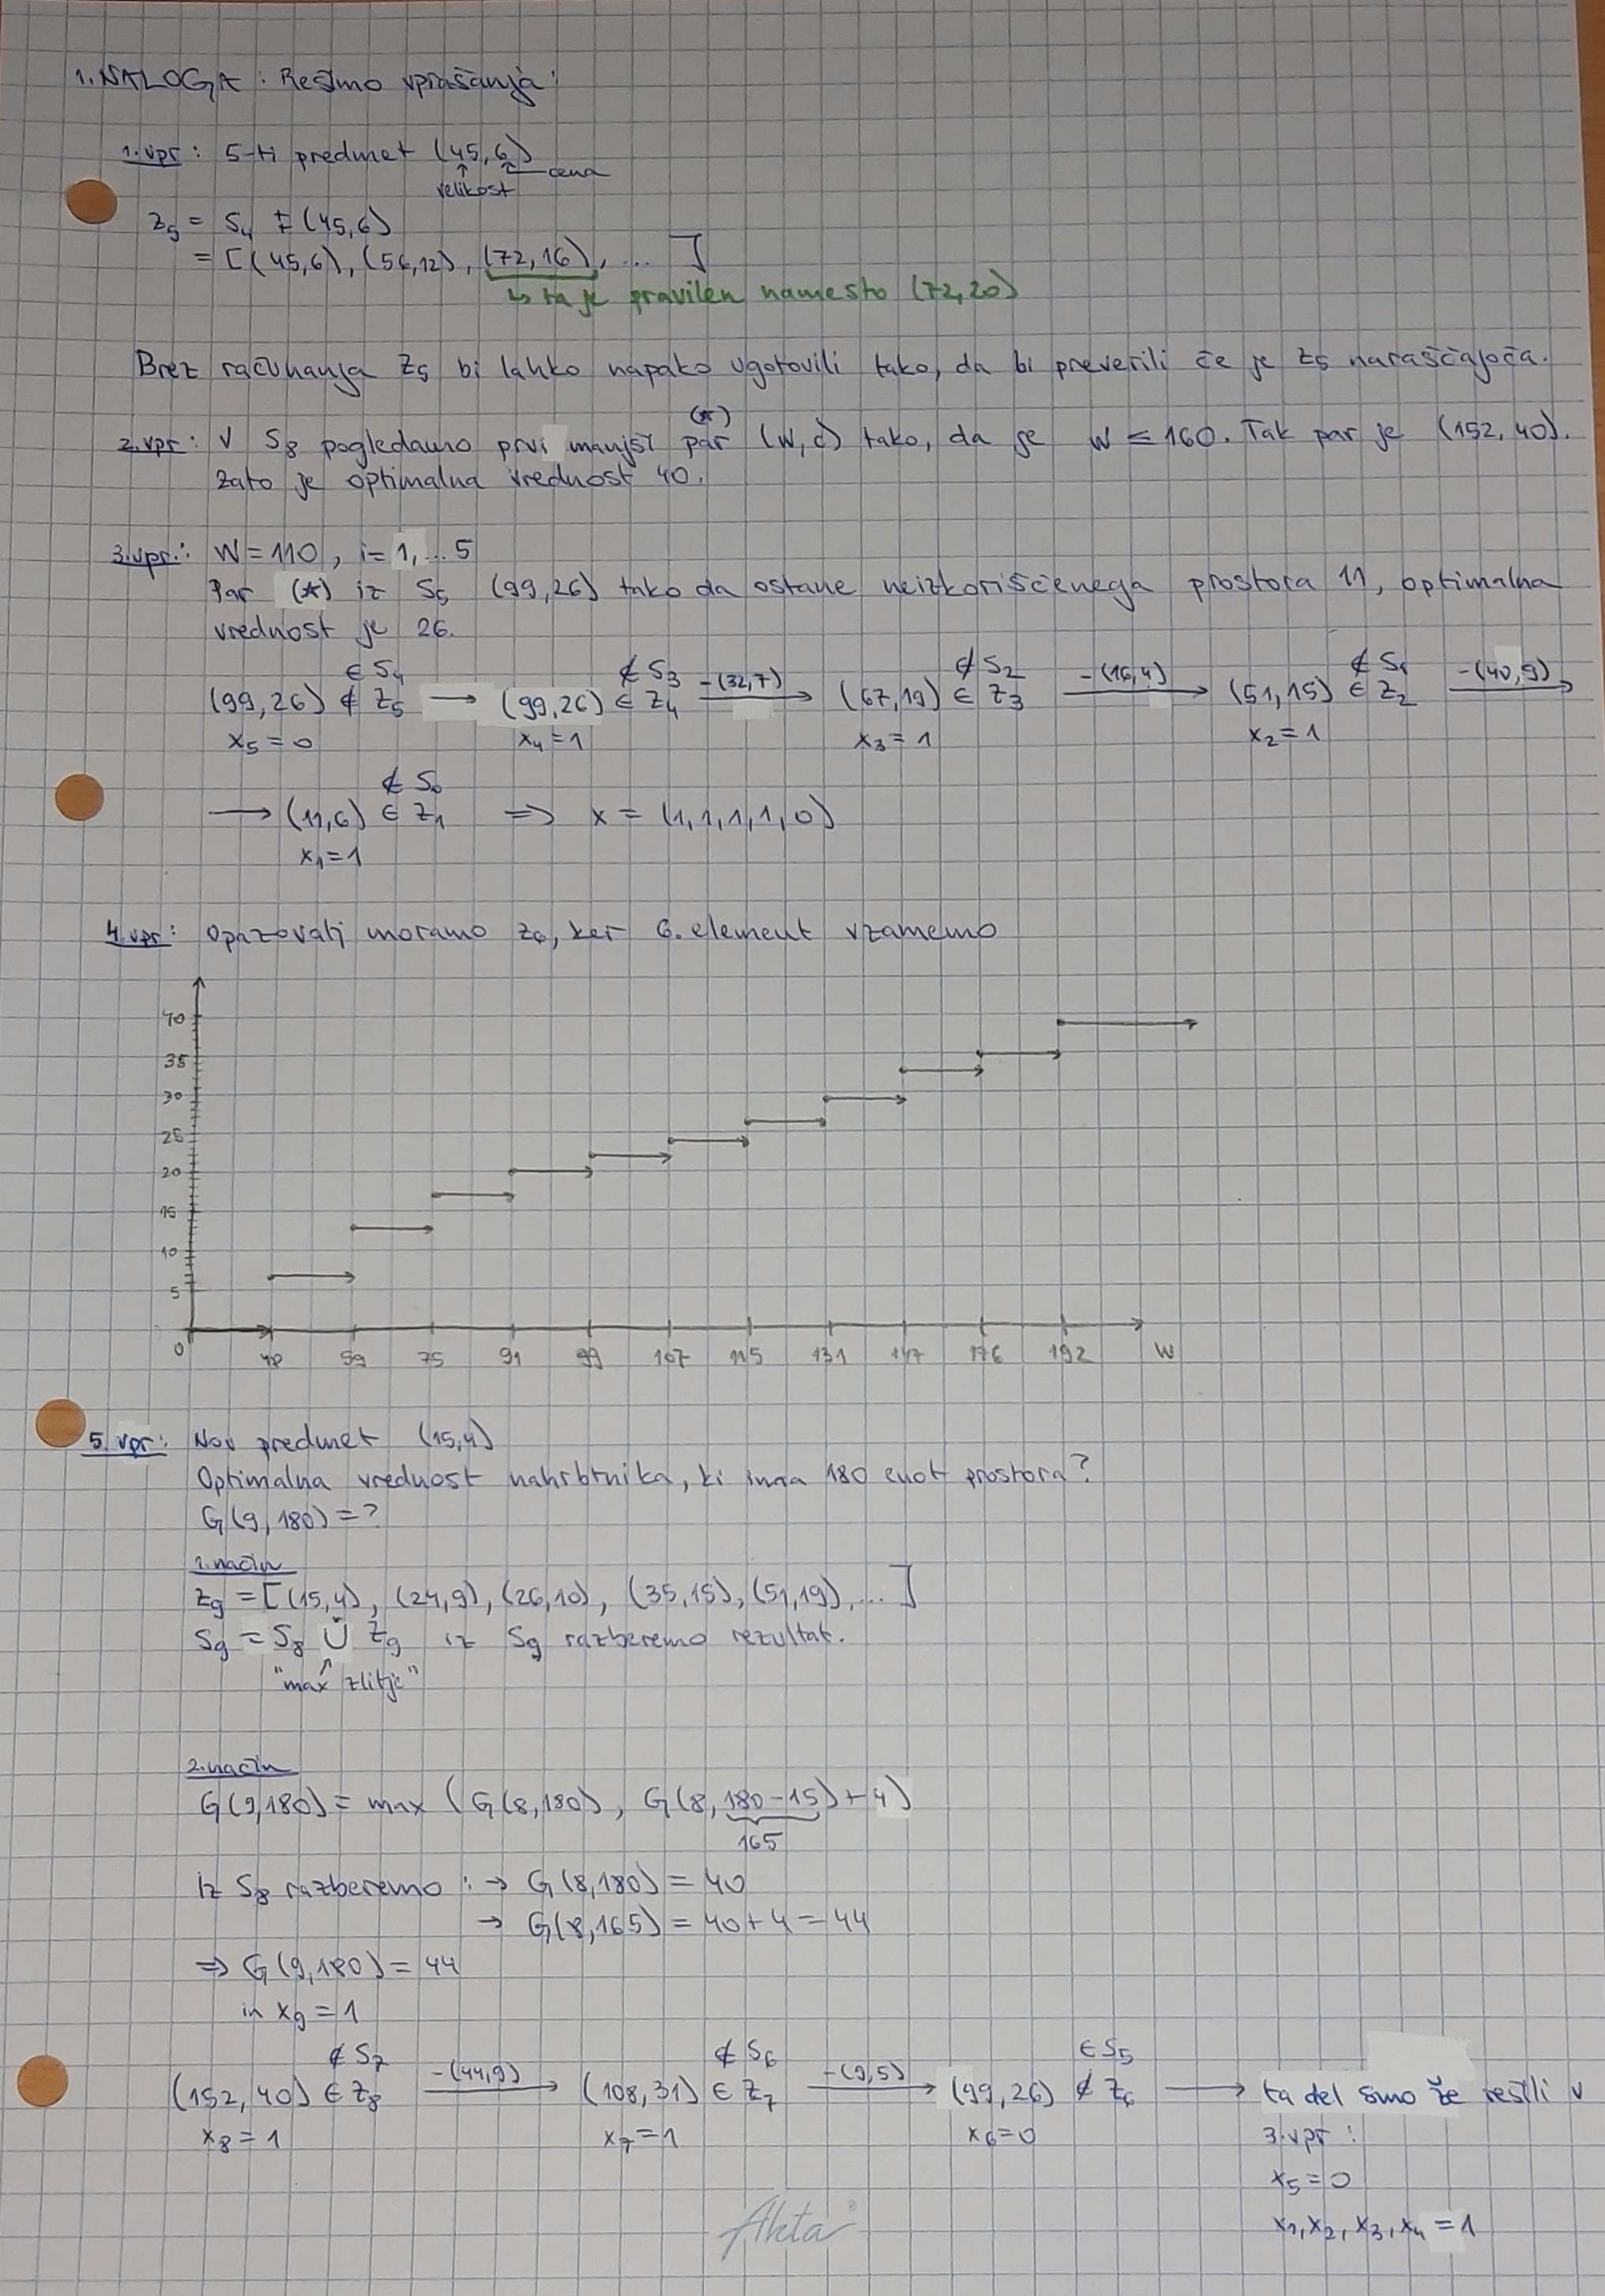 1. NALOGA: Rešimo vprašanja:
1. vpr: 5-ti predmet (45,6)
↑ velikost
cena
Z₅ = S₄ ∓ (45,6)
= [(45,6), (56,12), (72,16), ... ]
↳ ta je pravilen namesto (72,20)
Brez računanja Z₅ bi lahko napako ugotovili tako, da bi preverili če je Z₅ naraščajoča.
(*)
2. vpr: V S₈ pogledamo prvi manjši par (W,c) tako, da je W ≤ 160. Tak par je (152, 40).
Zato je optimalna vrednost 40.
3. vpr.: W = 110, i = 1, ... 5
Par (*) iz S₅ (99,26) tako da ostane neizkoriščenega prostora 11, optimalna
vrednost je 26.
∈ S₄ ∉ S₃ ∉ S₂ ∉ S₁
(99,26) ∉ Z₅ → (99,26) ∈ Z₄ -(32,7)→ (67,19) ∈ Z₃ -(16,4)→ (51,15) ∈ Z₂ -(40,9)→
x₅ = 0 x₄ = 1 x₃ = 1 x₂ = 1
∉ S₀
→ (11,6) ∈ Z₁ ⇒ x = (1,1,1,1,0)
x₁ = 1
4. vpr: Opazovati moramo Z₆, ker 6. element vzamemo
40
35
30
25
20
15
10
5
0 48 59 75 91 99 107 115 131 147 176 192 W
5. vpr: Nov predmet (15,4)
Optimalna vrednost nahrbtnika, ki ima 180 enot prostora?
G(9,180) = ?
1. način
Z₉ = [(15,4), (24,9), (26,10), (35,15), (51,19), ... ]
S₉ = S₈ ∪ Z₉ iz S₉ razberemo rezultat.
"max zlitje"
2. način
G(9,180) = max (G(8,180), G(8,180-15)+4)
165
Iz S₈ razberemo: → G(8,180) = 40
→ G(8,165) = 40+4 = 44
⇒ G(9,180) = 44
in x₉ = 1
∉ S₇ ∉ S₆ ∈ S₅
(152, 40) ∈ Z₈ -(44,9)→ (108,31) ∈ Z₇ -(9,5)→ (99,26) ∉ Z₆ → ta del smo že rešili v
x₈ = 1 x₇ = 1 x₆ = 0 3. vpr:
x₅ = 0
x₁, x₂, x₃, x₄ = 1
Akta